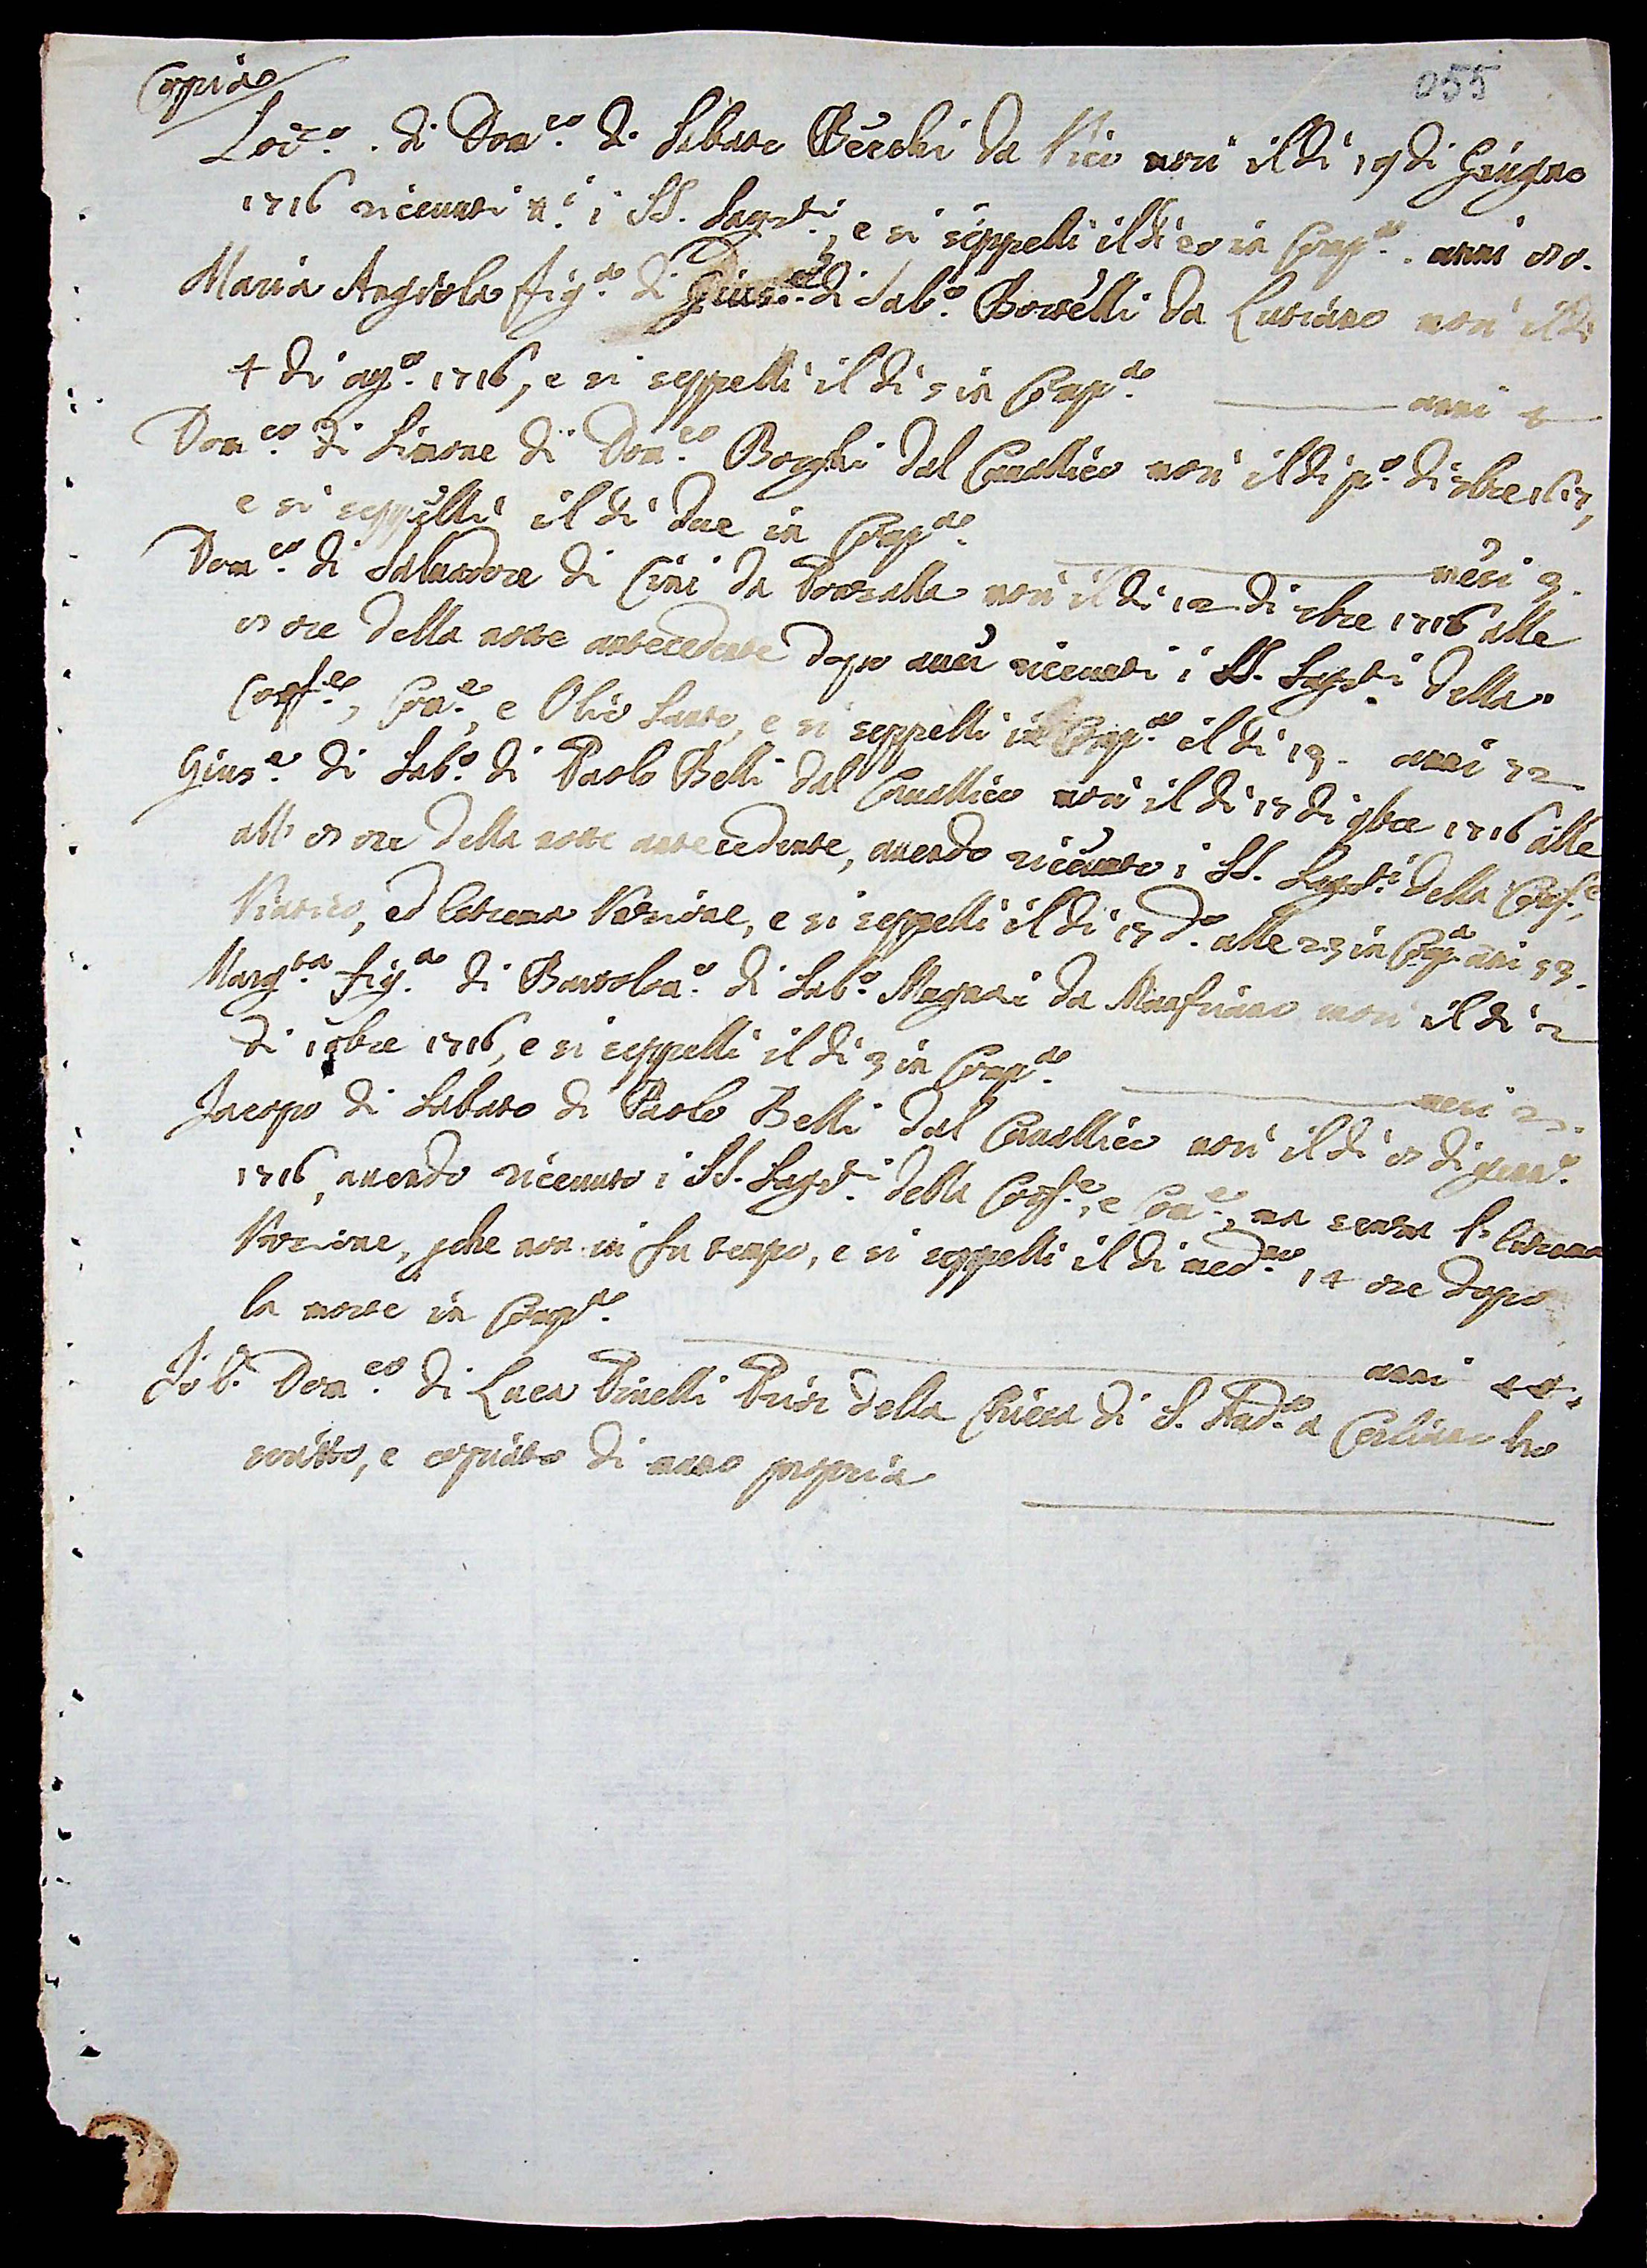 Copia
055
Lor.zo di Dom.co di Sabato Becchi da Vico morì il dì 19 di Giugno
1716 ricevuti i SS. Sagr.ti, e si seppellì il dì 20 in Comp.a anni 80.
Maria Angiola fig.a di Gius.e di Sab.o Borrelli da Lutiano morì il dì
4 di ag.o 1716, e si seppellì il dì 5 in Comp.a anni 4
Dom.co di Simone di Dom.co Borghi dal Cavallico morì il dì p.o di 7bre
e si seppellì il dì due in Comp.a
mesi 3.
Dom.co di Salvadore di Cini da morì il dì 12 di 7bre 1716 alle
8 ore della notte antecedente dopo aver ricevuti i SS. Sagr.ti della
Conf.e, Com.e, e Olio Santo, e si seppellì in Comp.a il dì 13. anni 72
Gius.e di Sab.o di Paolo Belli dal Cavallico morì il dì 17 di 9bre 1716 alle
all' 8 ore della notte antecedente, avendo ricevuto i SS. Sagr.ti della Conf.e,
Viatico, ed Estrema Unzione, e si seppellì il dì 17 d.o alle 23 in Comp.a anni 53.
Marg.ta fig.a di Bartolom.o di Sab.o Magnani da morì il dì 2
di 10bre 1716, e si seppellì il dì 3 in Comp.a
mesi 22.
Jacopo di Sabato di Paolo Belli dal Cavallico morì il dì 8 di genn.o
1716, avendo ricevuto i SS. Sagr.ti della Conf.e, e Com.e, ma senza l'Estrema
Unzione, p.che non vi fu tempo, e si seppellì il dì med.mo 14 ore dopo
la morte in Comp.a
anni 44.
Io P. Dom.co di Luca Pinelli Prior della Chiesa di S. And.a a Cerliano ho
scritto, e copiato di mano propria